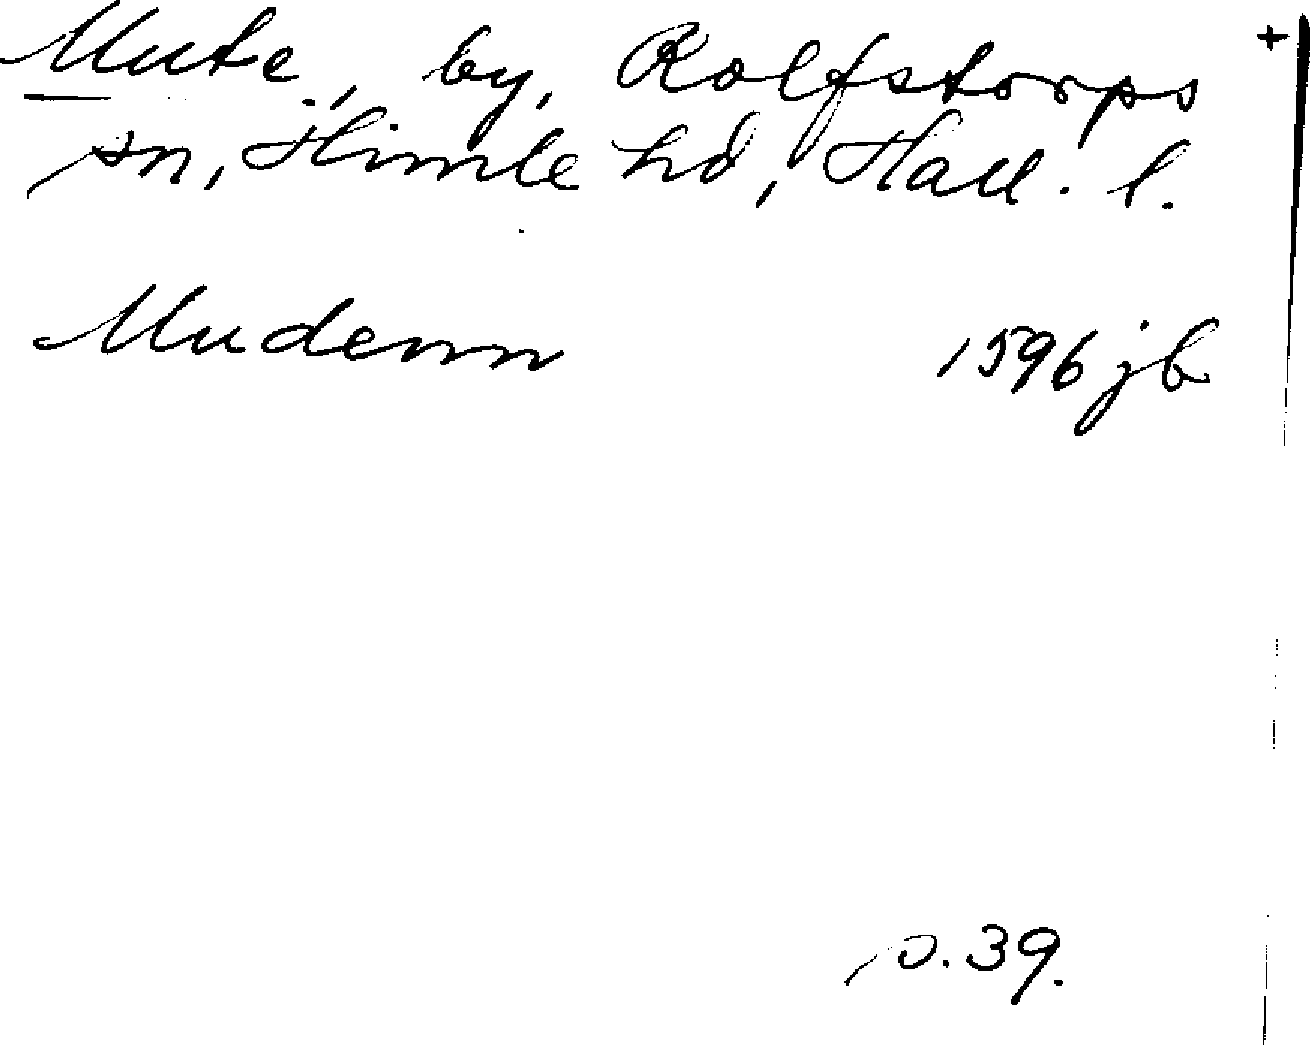 Mute, by, Rolfstorps +
sn, Himle hd, Hall. l.
Mudenn 1596 jb
p. 39.